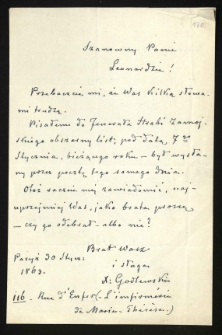 Szanowny Panie
Leonardzie!
Przebaczcie mi, że Was kilką słowa-
mi trudzę.
Pisałem do Jenerała Hrabi Zamoj-
skiego obszerny list, pod datą 7go
Stycznia, bieżącego roku – był wysła-
ny przez pocztę tego samego dnia.
Otóż raczcie mię zawiadomić, naj-
uprzejmiej Was, jako brata proszę
– czy go odebrał – albo nie?
Brat Wasz
i sługa
X. Godlewski
Paryż 30 Stycz.
1863.
116 – Rue d'Enfer. L'infirmerie
de Marie-Thérèse.)